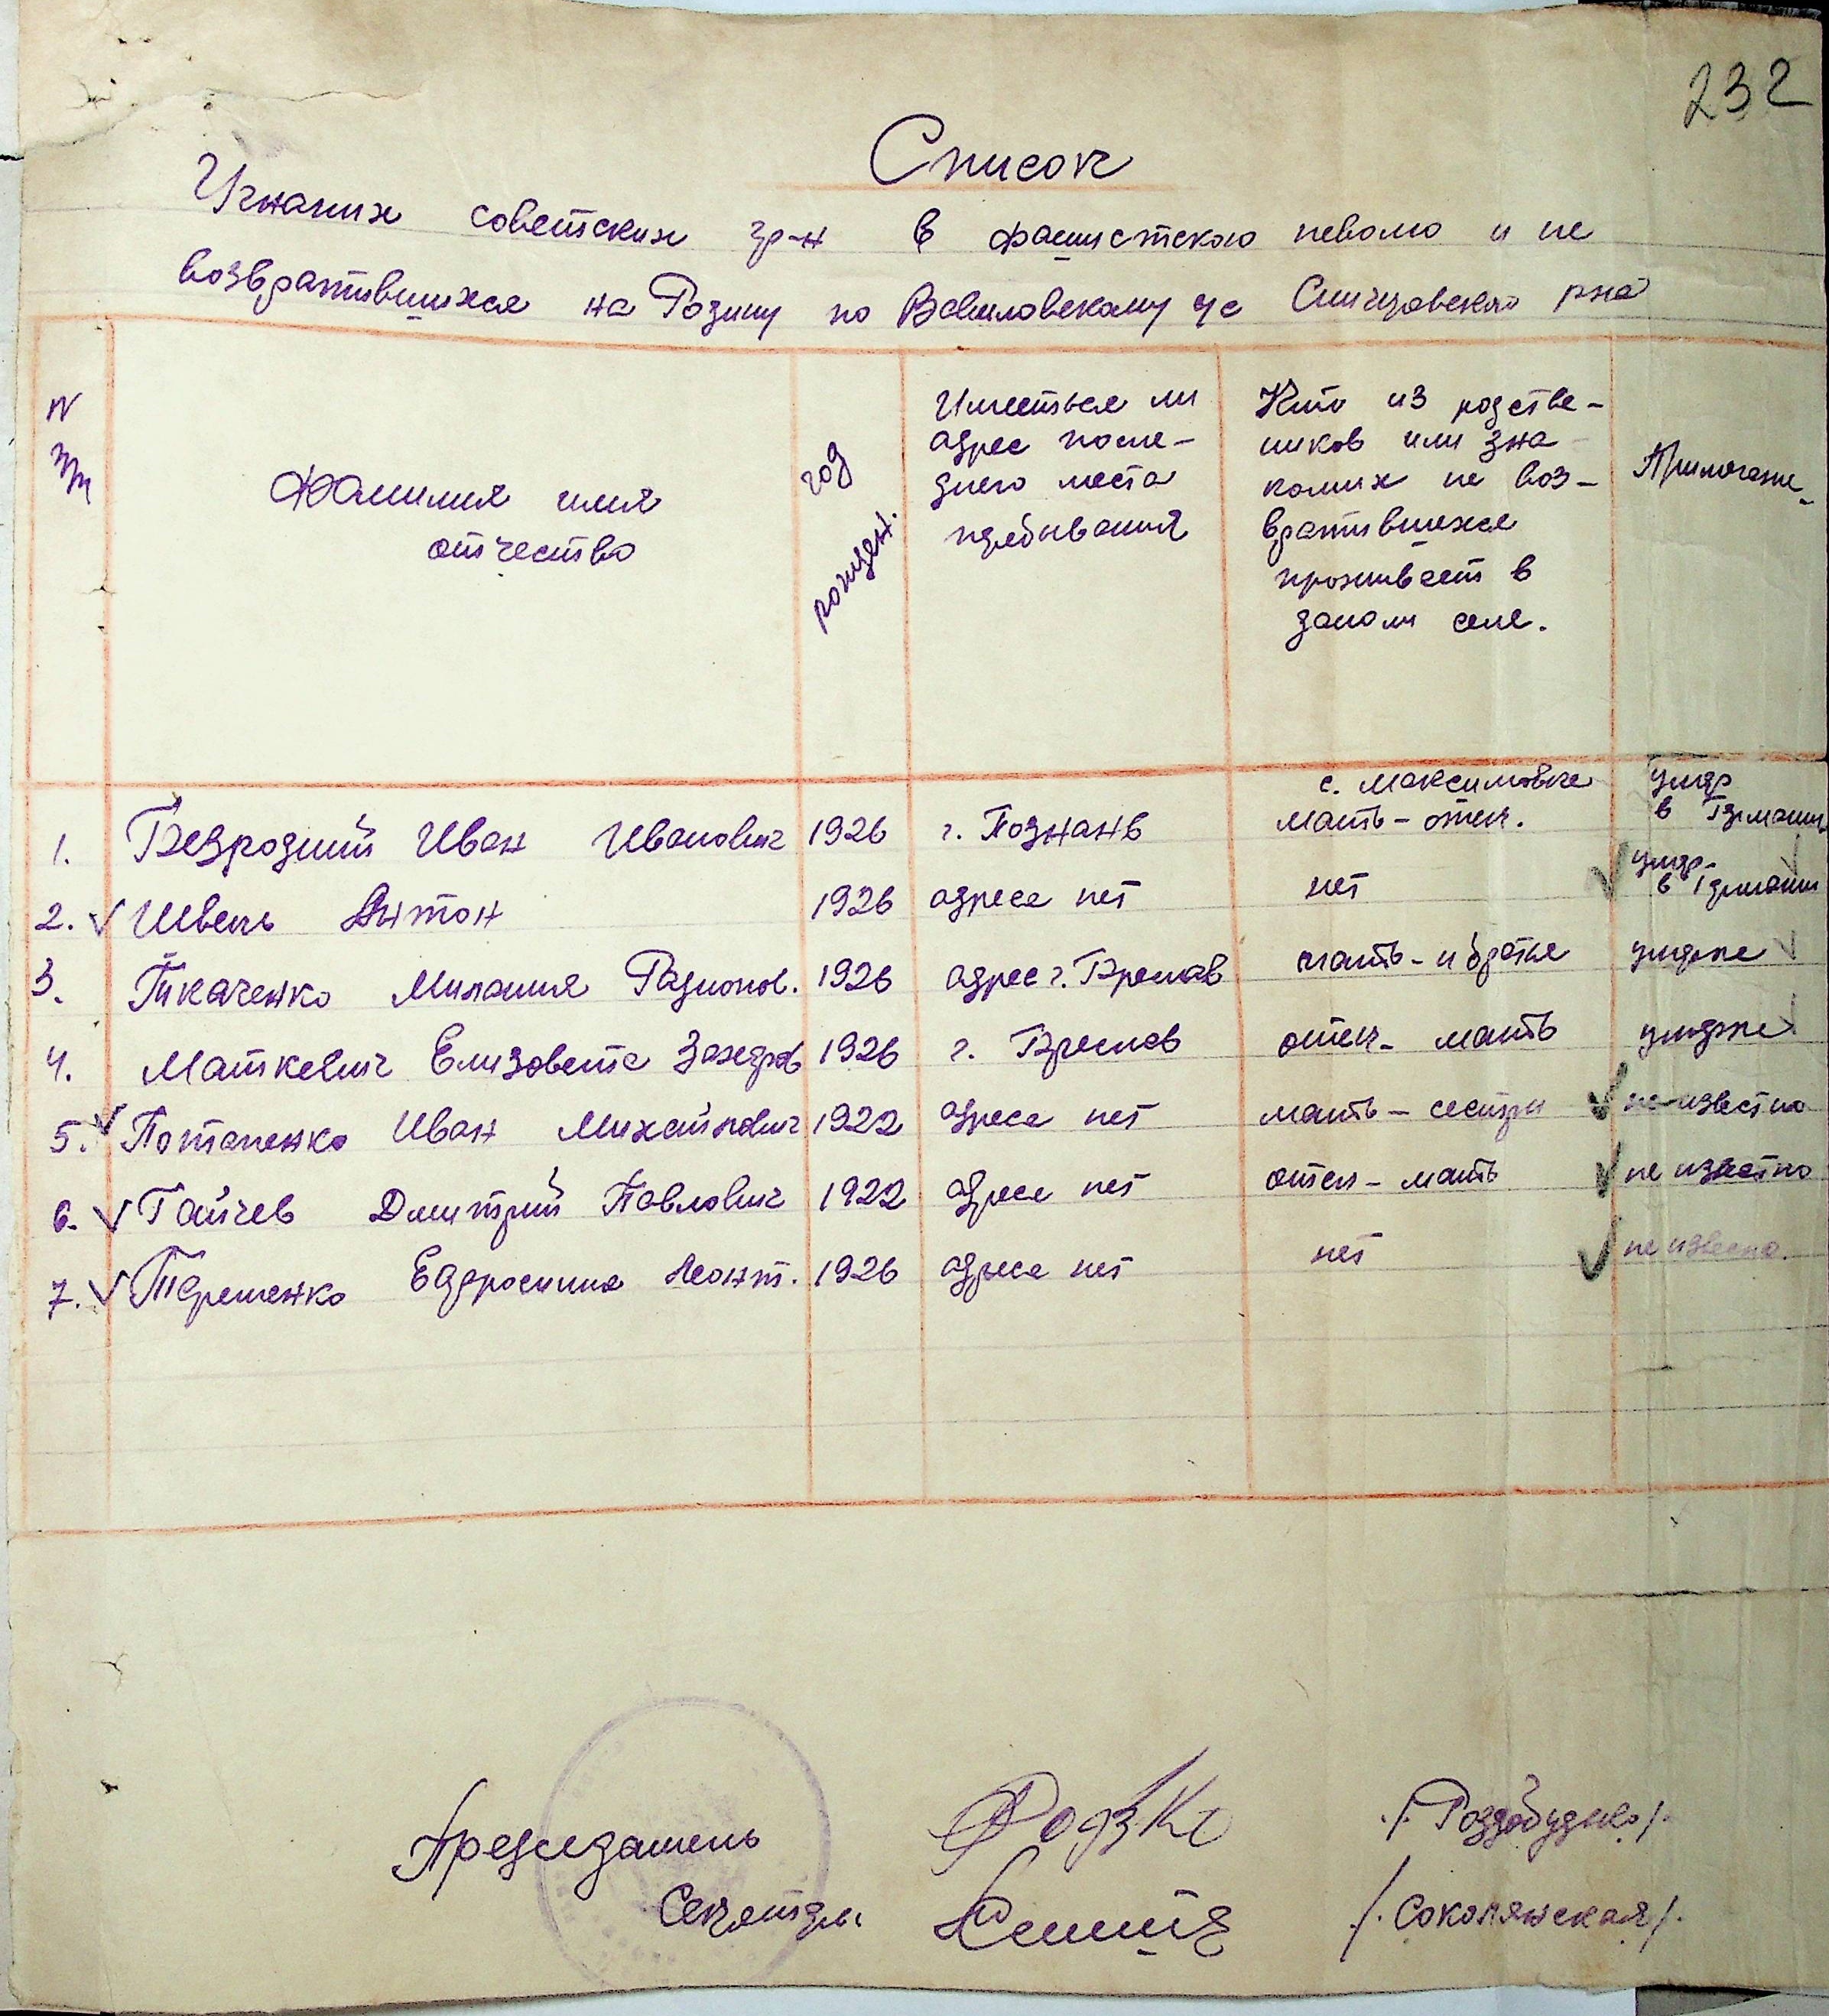 232
Список
Угнаних советских гр-н в фашистскою неволю и не
возвратившихся на Родину по Вавиловскому с/с Снигиревского р-на
N
п/п
Фамилия имя
отчество
год
рожден.
Имееться ли
адрес после-
днего места
пребывания
Кто из родстве-
ников или зна-
комих не воз-
вратившихся
проживает в
даном селе.
Примечание
с. Максимовке
1. Безродний Иван Иванович 1926 г. Познань мать-отец. умер в Германии
2. Швець Антон 1926 адреса нет нет умер- в Германии
3. Ткаченко Милания Радионов. 1926 адрес г. Бреслав мать-и братья умерла
4. Маткевич Елизовета Захаров 1926 г. Бреслав отец- мать умерла
5. Потапенко Иван Михайлович 1922 адреса нет мать- сестри не известно
6. Гайчев Дмитрий Павлович 1922 адреса нет отец- мать не известно
7. Терещенко Ефросиния Леонт. 1926 адреса нет нет не известно.
Председатель /Роздобудько/.
Секретарь /.Соколянская/.